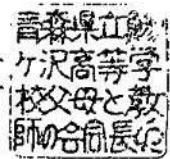 青森県立鰺
ケ沢高等学
校父母と教
師の会会長の